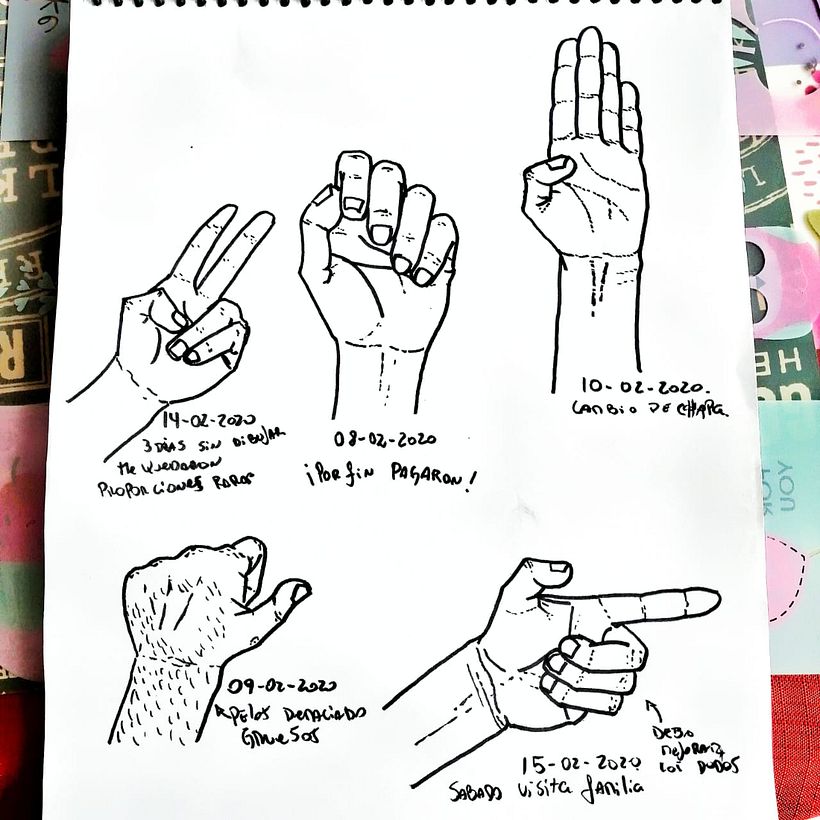 10-02-2020.
CAMBIO DE CHAPA
14-02-2020
3 DÍAS SIN DIBUJAR
ME QUEDARON
PROPORCIONES RARAS
08-02-2020
¡POR fin PAGARON!
09-02-2020
PELOS DEMACIADO
GRUESOS
15-02-2020
SABADO VISITA FAMILIA
DEBO
MEJORAR
LOS DEDOS